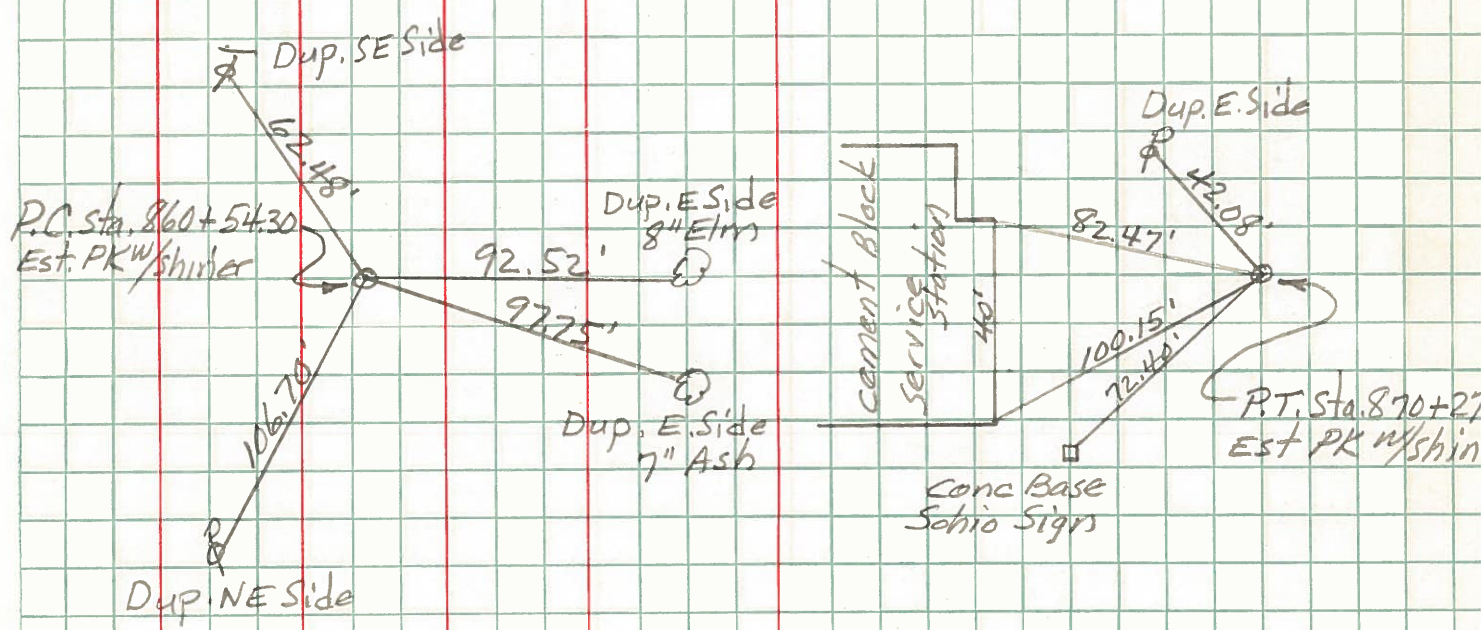 Dup. SE Side
62.48'
P.C. Sta. 860+54.30
Est. PK w/shiner
92.52'
Dup. E Side
8" Elm
97.75'
Dup. E. Side
7" Ash
106.70'
Dup. NE Side
Cement Block
Service
Station
40'
Dup. E. Side
42.08'
82.47'
100.15'
72.40'
P.T. Sta. 870+27
Est PK w/shin
Conc Base
Sohio Sign